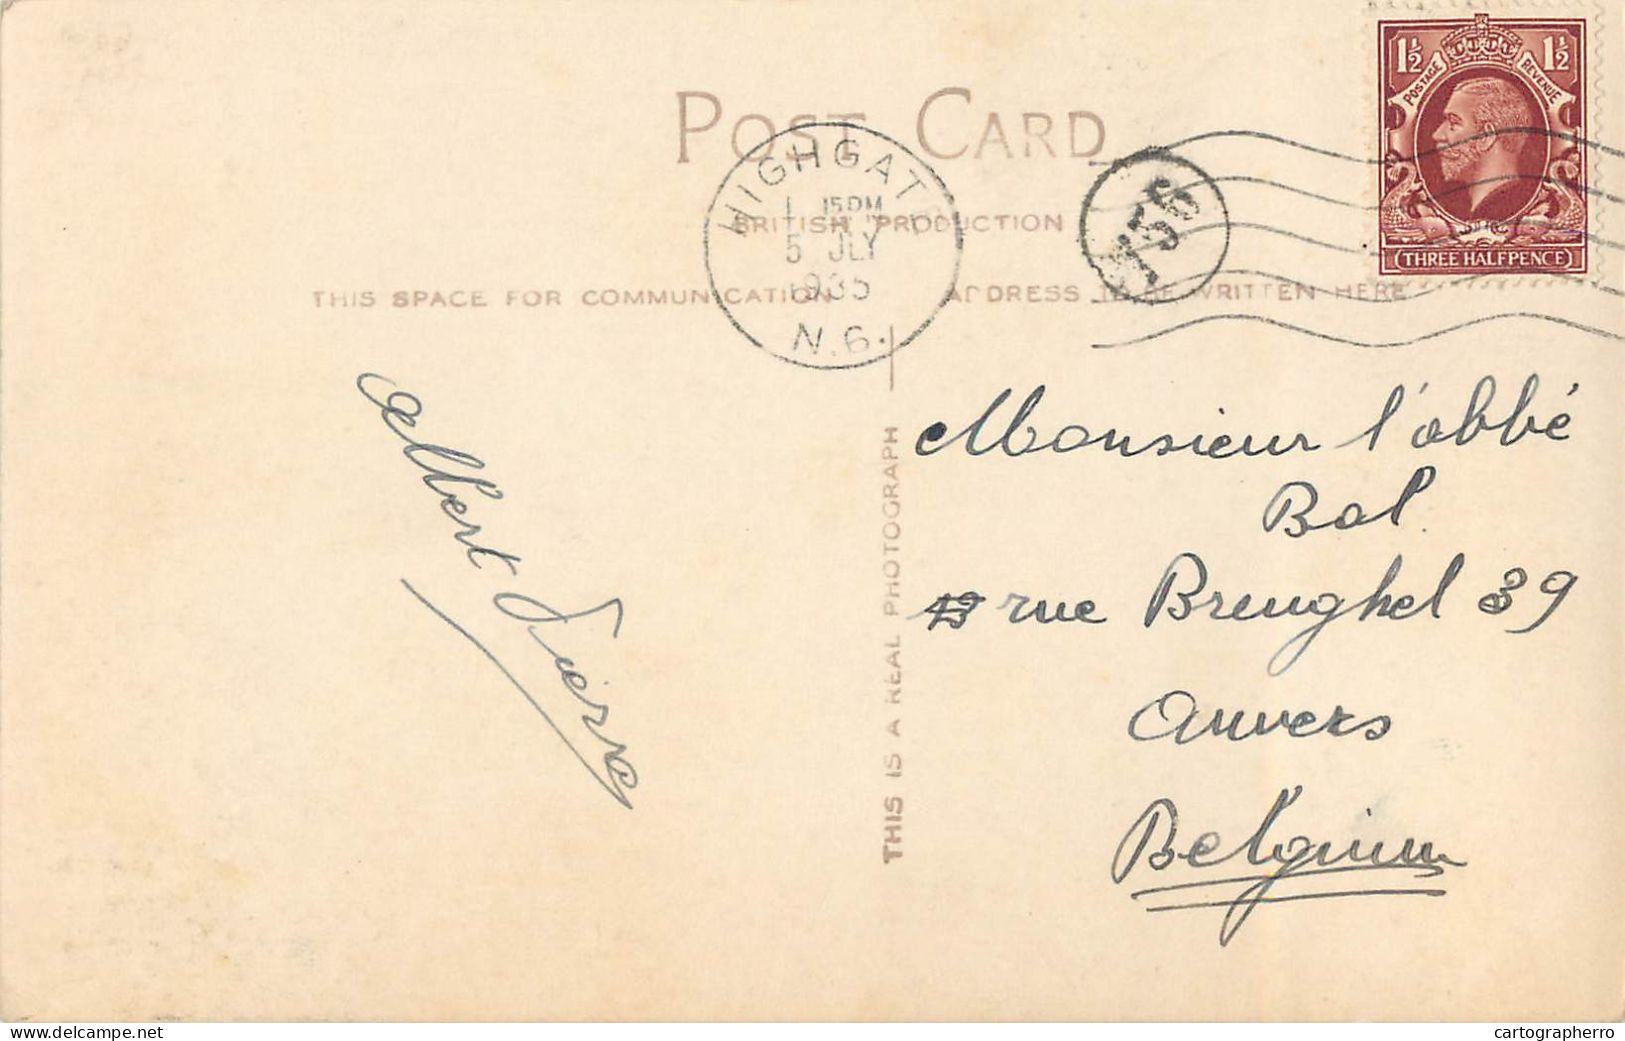 POST CARD
BRITISH PRODUCTION
THIS SPACE FOR COMMUNICATION
ADDRESS TO BE WRITTEN HERE
HIGHGATE
1 15PM
5 JLY
1935
N.6.
1½ 1½
POSTAGE REVENUE
THREE HALFPENCE
THIS IS A REAL PHOTOGRAPH
Albert
Monsieur l'abbé
Bal
rue Breughel 39
Anvers
Belgium
delcampe.net
cartographerro